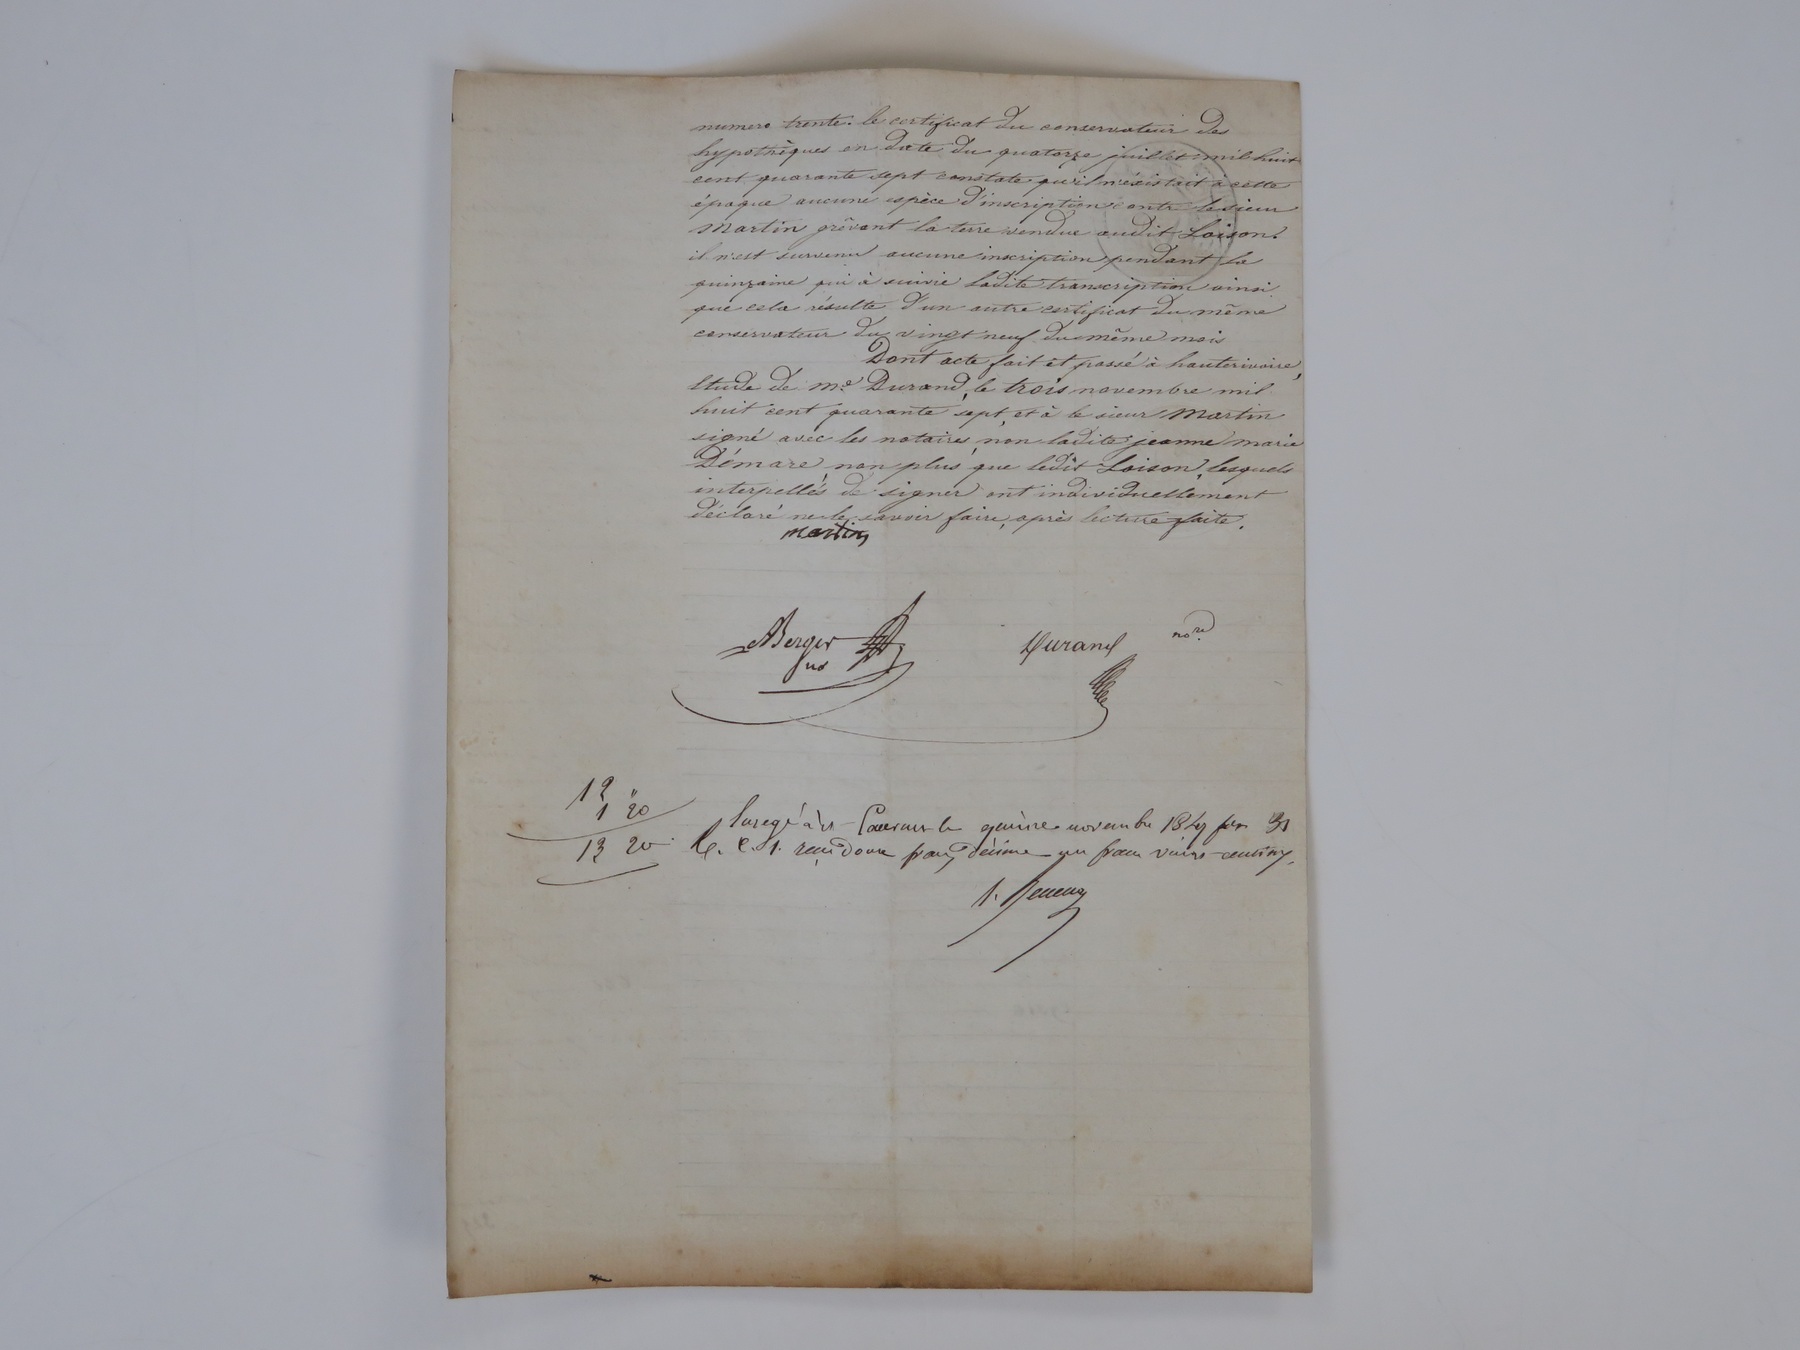 numero trente. le certificat du conservateur des
hypothèques en date du quatorze juillet mil huit
cent quarante sept constate qu'il n'éxistait à cette
époque aucune espèce d'inscription contre le sieur
Martin grêvant la terre vendue audit Loison.
il n'est survenu aucune inscription pendant la
quinzaine qui à suivie ladite transcription ainsi
que cela résulte d'un autre certificat du même
conservateur du vingt neuf du même mois
Dont acte fait et passé à hauterivoire,
Etude de Me. Durand, le trois novembre mil
huit cent quarante sept, et à le sieur Martin
signé avec les notaires, non ladite jeanne marie
Démare, non plus que ledit Loison, lesquels
interpellés de signer ont individuellement
déclaré ne le savoir faire, après lecture faite.
martin
Berger
Durand nore.
12 "
1 20
13 20
St Laurent le quinze novembre 1847 fo 31
R. C. 1. reçu douze francs décime un franc vingt centimes.